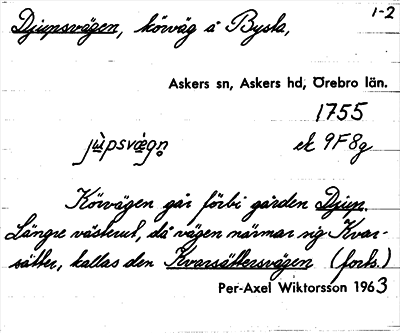 1-2
Djupsvägen, körväg å Bysta,
Askers sn, Askers hd, Örebro län.
1755
jùpsvægn̥ ek 9F8g
Körvägen går förbi gården Djup.
Längre västerut, då vägen närmar sig Kvar-
sätter, kallas den Kvarsättersvägen (forts.)
Per-Axel Wiktorsson 1963